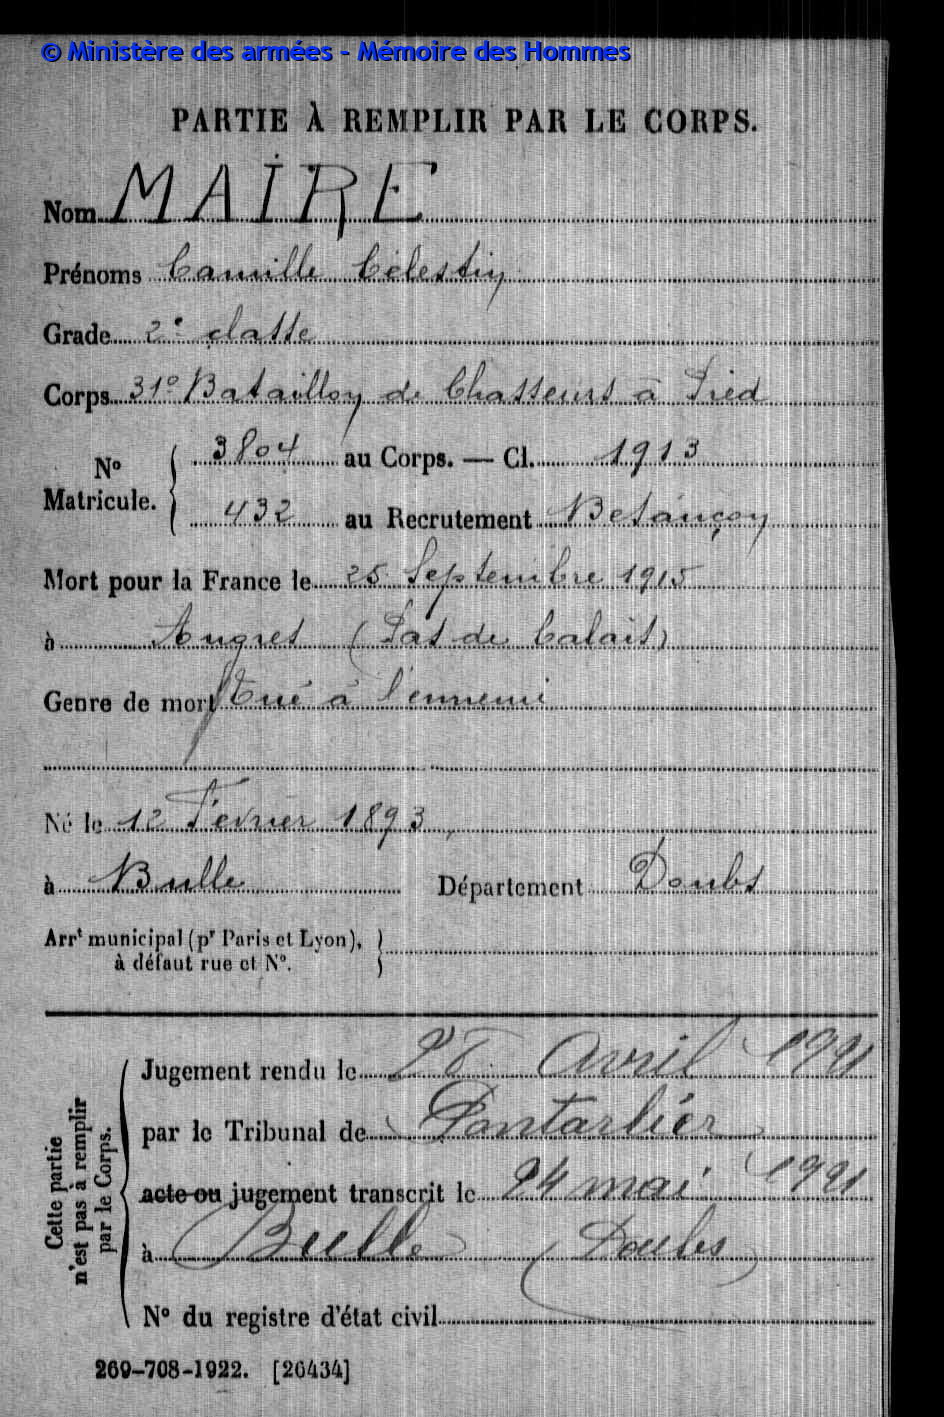 © Ministère des armées - Mémoire des Hommes
PARTIE À REMPLIR PAR LE CORPS.
Nom MAIRE
Prénoms Camille Célestin
Grade 2e classe
Corps 31e Bataillon de Chasseurs à Pied
N° Matricule. 3804 au Corps. — Cl. 1913
432 au Recrutement Besançon
Mort pour la France le 25 Septembre 1915
à Angres (Pas de Calais)
Genre de mort Tué à l'ennemi
Né le 12 Février 1893
à Bulle Département Doubs
Arrt municipal (pr Paris et Lyon),
à défaut rue et N°.
Cette partie
n'est pas à remplir
par le Corps.
Jugement rendu le Avril 1921
par le Tribunal de Pontarlier
acte ou jugement transcrit le 24 mai 1921
à Bulle (Doubs)
N° du registre d'état civil
269-708-1922. [26434]